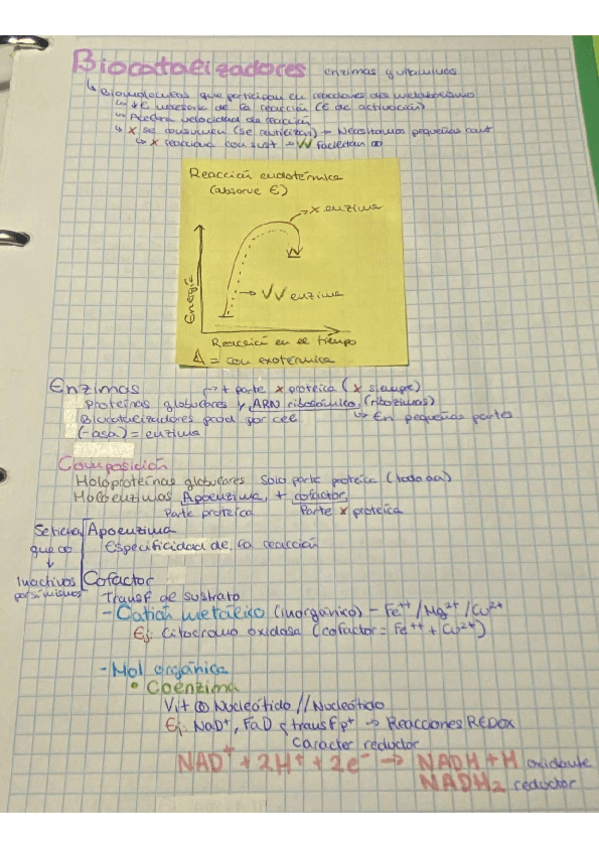 Biocatalizadores enzimas y vitaminas
↳ Biomoléculas que participan en reacciones del metabolismo
↳ ↓ E necesaria de la reacción (E de activación)
↳ Acelera velocidad de reacción
↳ X se consumen (se reutilizan) → Necesitamos pequeñas cant
↳ X reacciona con sust → VV facilitan
Reacción endotérmica
(absorve E)
→ X enzima
→ VV enzima
Energía
Reacción en el tiempo
Δ = con exotérmica
Enzimas → + parte X proteica (X siempre)
Proteínas globulares y ARN ribosómico (ribozimas)
Biocatalizadores prod por cel ↳ En pequeñas partes
(-asa) = enzima
Composición
Holoproteínas globulares Solo parte proteica (todo aa)
Holoenzimas Apoenzima + cofactor
Parte proteica Parte X proteica
Apoenzima
Especificidad de la reacción
↓
Inactivos
por sí mismos
Cofactor
Transf de sustrato
- Catión metálico (inorgánico) - Fe⁺⁺/Mg²⁺/Cu²⁺
Ej: Citocromo oxidasa (cofactor = Fe⁺⁺ + Cu²⁺)
- Mol orgánica
• Coenzima
Vit Nucleótido // Nucleótido
Ej: NaD⁺, FaD transf p⁺ → Reacciones REDOX
Caracter reductor
NAD⁺ + 2H⁺ + 2e⁻ → NADH + H oxidante
NADH₂ reductor